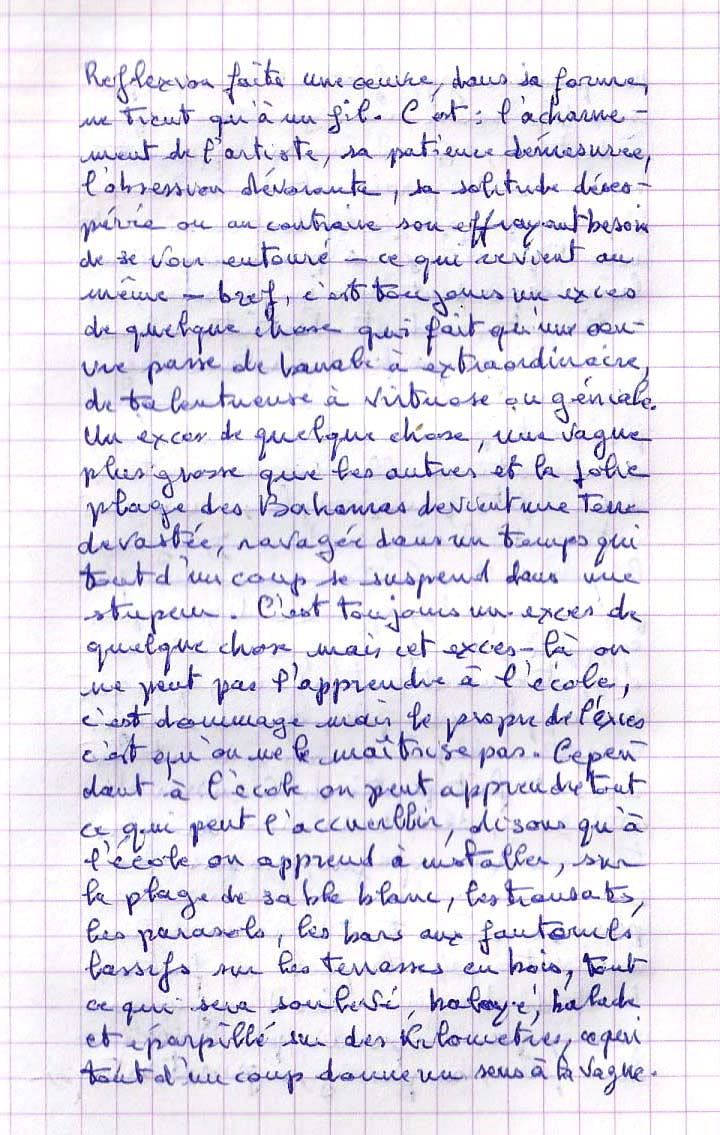 Reflexion faite une œuvre, dans sa forme,
ne tient qu'à un fil. C'est : l'acharne-
ment de l'artiste, sa patience démesurée,
l'obsession dévorante, sa solitude déses-
pérée ou au contraire son effrayant besoin
de se voir entouré – ce qui revient au
même – bref, c'est toujours un exces
de quelque chose qui fait qu'une œu-
vre passe de banale à extraordinaire,
de talentueuse à virtuose ou géniale.
Un exces de quelque chose, une vague
plus grosse que les autres et la jolie
plage des Bahamas devient une Terre
devastée, ravagée dans un temps qui
tout d'un coup se suspend dans une
stupeur. C'est toujours un exces de
quelque chose mais cet exces-là on
ne peut pas l'apprendre à l'école,
c'est dommage mais le propre de l'exces
c'est qu'on ne le maîtrise pas. Cepen
dant à l'école on peut apprendre tout
ce qui peut l'accueillir, disons qu'à
l'école on apprend à installer, sur
la plage de sable blanc, les transats,
les parasols, les bars aux fauteuils
lassifs sur les terrasses en bois, tout
ce qui sera soulevé, balayé,
et éparpillé sur des kilomètres, ce qui
tout d'un coup donne un sens à la vague.